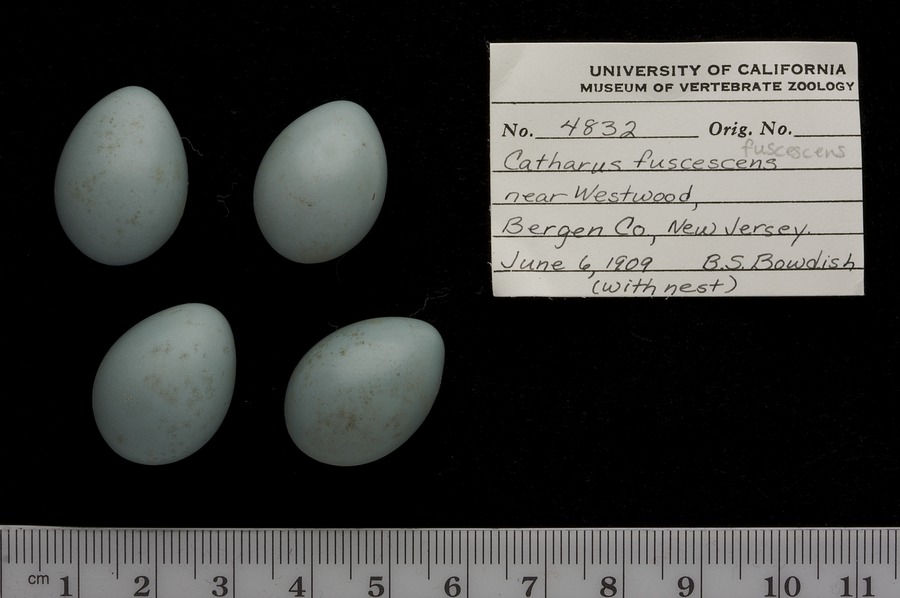 UNIVERSITY OF CALIFORNIA
MUSEUM OF VERTEBRATE ZOOLOGY
No. 4832 Orig. No.
fuscescens
Catharus fuscescens
near Westwood,
Bergen Co., New Jersey.
June 6, 1909 B.S. Bowdish
(with nest)
cm 1 2 3 4 5 6 7 8 9 10 11